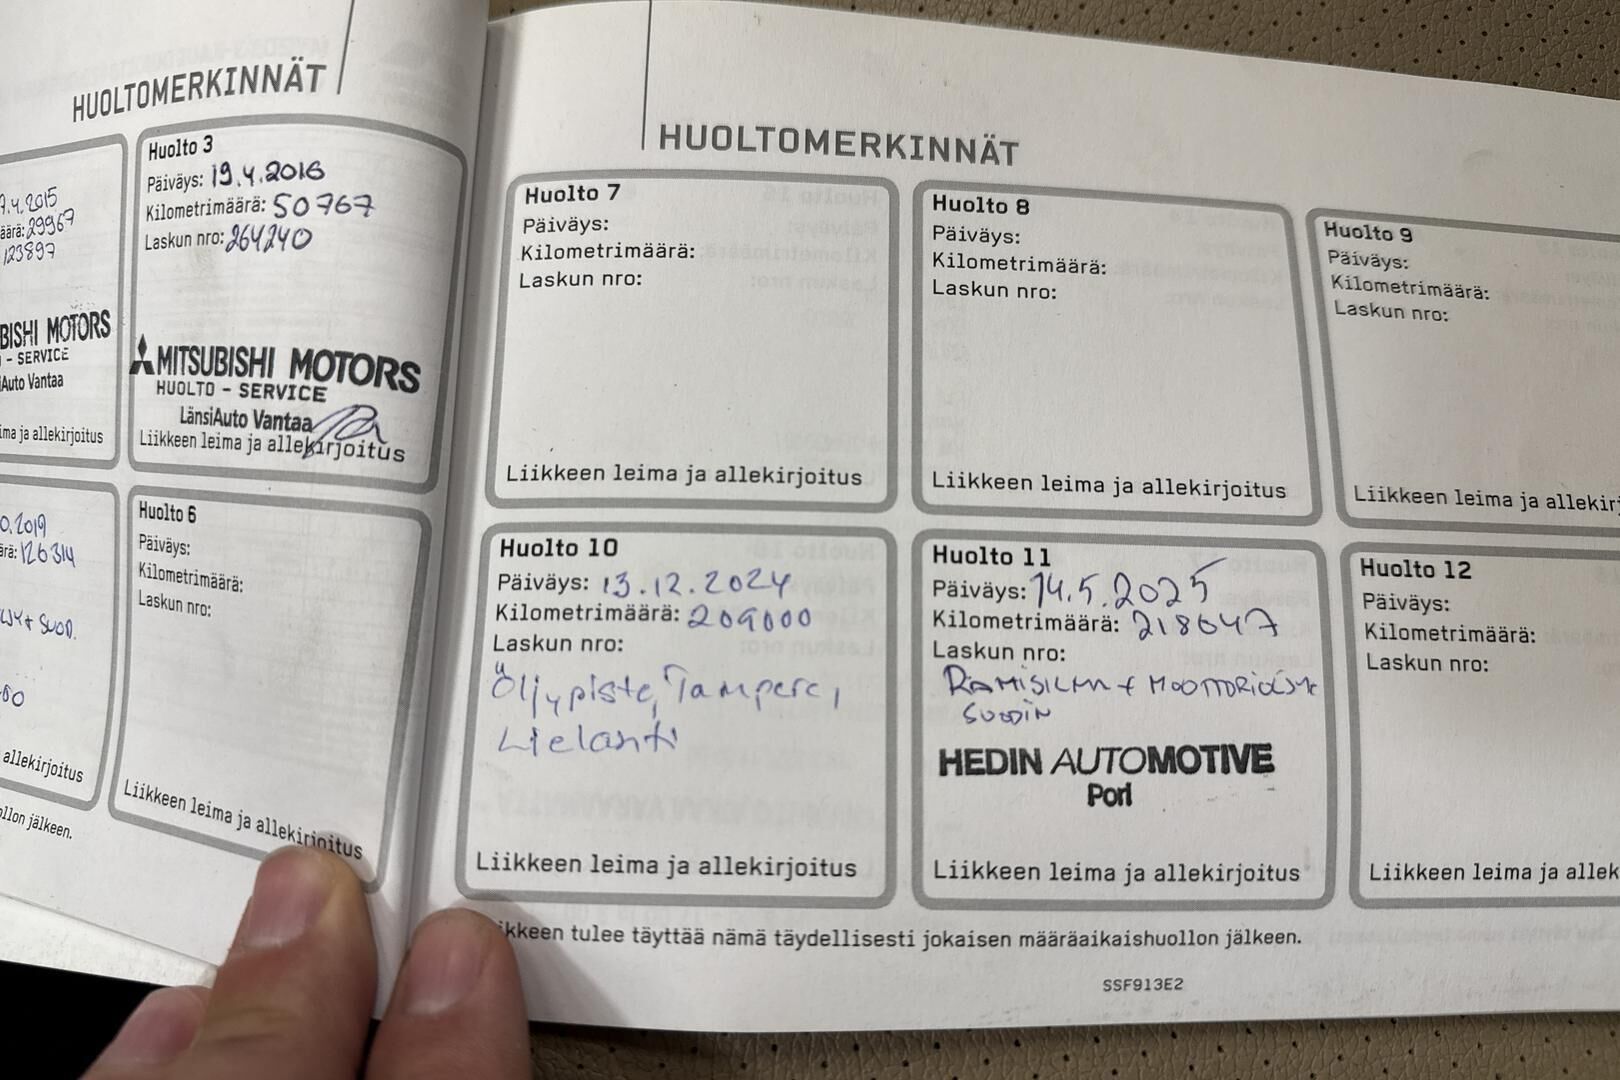 HUOLTOMERKINNÄT
7.4.2015
äärä: 29967
123897
BISHI MOTORS
- SERVICE
Auto Vantaa
ima ja allekirjoitus
Huolto 3
Päiväys: 19.4.2016
Kilometrimäärä: 50767
Laskun nro: 264240
MITSUBISHI MOTORS
HUOLTO - SERVICE
LänsiAuto Vantaa
Liikkeen leima ja allekirjoitus
0.2019
ärä: 126314
+ SUOD.
allekirjoitus
ollon jälkeen.
Huolto 6
Päiväys:
Kilometrimäärä:
Laskun nro:
Liikkeen leima ja allekirjoitus
HUOLTOMERKINNÄT
Huolto 7
Päiväys:
Kilometrimäärä:
Laskun nro:
Liikkeen leima ja allekirjoitus
Huolto 8
Päiväys:
Kilometrimäärä:
Laskun nro:
Liikkeen leima ja allekirjoitus
Huolto 9
Päiväys:
Kilometrimäärä:
Laskun nro:
Liikkeen leima ja allekir
Huolto 10
Päiväys: 13.12.2024
Kilometrimäärä: 209000
Laskun nro:
Öljypiste, Tampere,
Lielahti
Liikkeen leima ja allekirjoitus
Huolto 11
Päiväys: 14.5.2025
Kilometrimäärä: 218647
Laskun nro:
+
SUODIN
HEDIN AUTOMOTIVE
Pori
Liikkeen leima ja allekirjoitus
Huolto 12
Päiväys:
Kilometrimäärä:
Laskun nro:
Liikkeen leima ja allek
ikkeen tulee täyttää nämä täydellisesti jokaisen määräaikaishuollon jälkeen.
SSF913E2